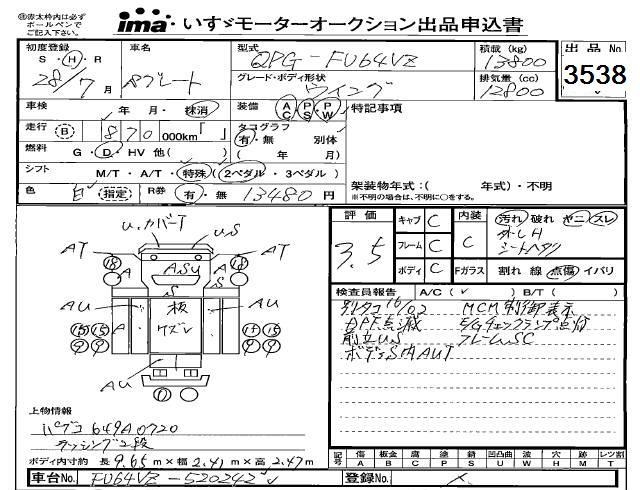 ※赤太枠内は必ずボールペンでご記入下さい。
ima いすゞモーターオークション出品申込書
初度登録 S・H・R 28/7月
車名 Pプレート
型式 QPG-FU64VZ
積載(kg) 13800
出品No 3538
グレード・ボディ形状 ウイング
排気量(cc) 12800
車検 年 月・抹消
装備 AC PS PW
特記事項
走行 B 870 000km「 」
タコグラフ 有・無 別体 ( 年 月)
燃料 G・D・HV 他( )
シフト M/T・A/T・特殊(2ペダル・3ペダル)
架装物年式:( 年式)・不明
※不明の場合は、不明に○をする。
色 白 指定 R券 有・無 13480円
評価 3.5
キャブ C
フレーム C
ボディ C
内装 C
汚れ 破れ ヤニ スレ
シートヘタリ
Fガラス 割れ 線 点傷 イバリ
u.カバーT
US
AT AT
ASU
AU AU
板
ワズレ
AU
検査員報告 A/C( ) B/T( )
別タコ 16/02 MCM制御表示
DPF点滅 E/gチェックランプ点灯
前立US フレームSC
ボディS内AUT
上物情報
パブコ 649A0720
ラッシング2段
ボディ内寸約 長 9.65m×幅 2.41m×高 2.47m
記号 傷A 板金B 腐C 塗P 錆S 凹凸曲U 波W 穴H 跡M レツ割T
車台No. FU64VZ-520242
登録No.